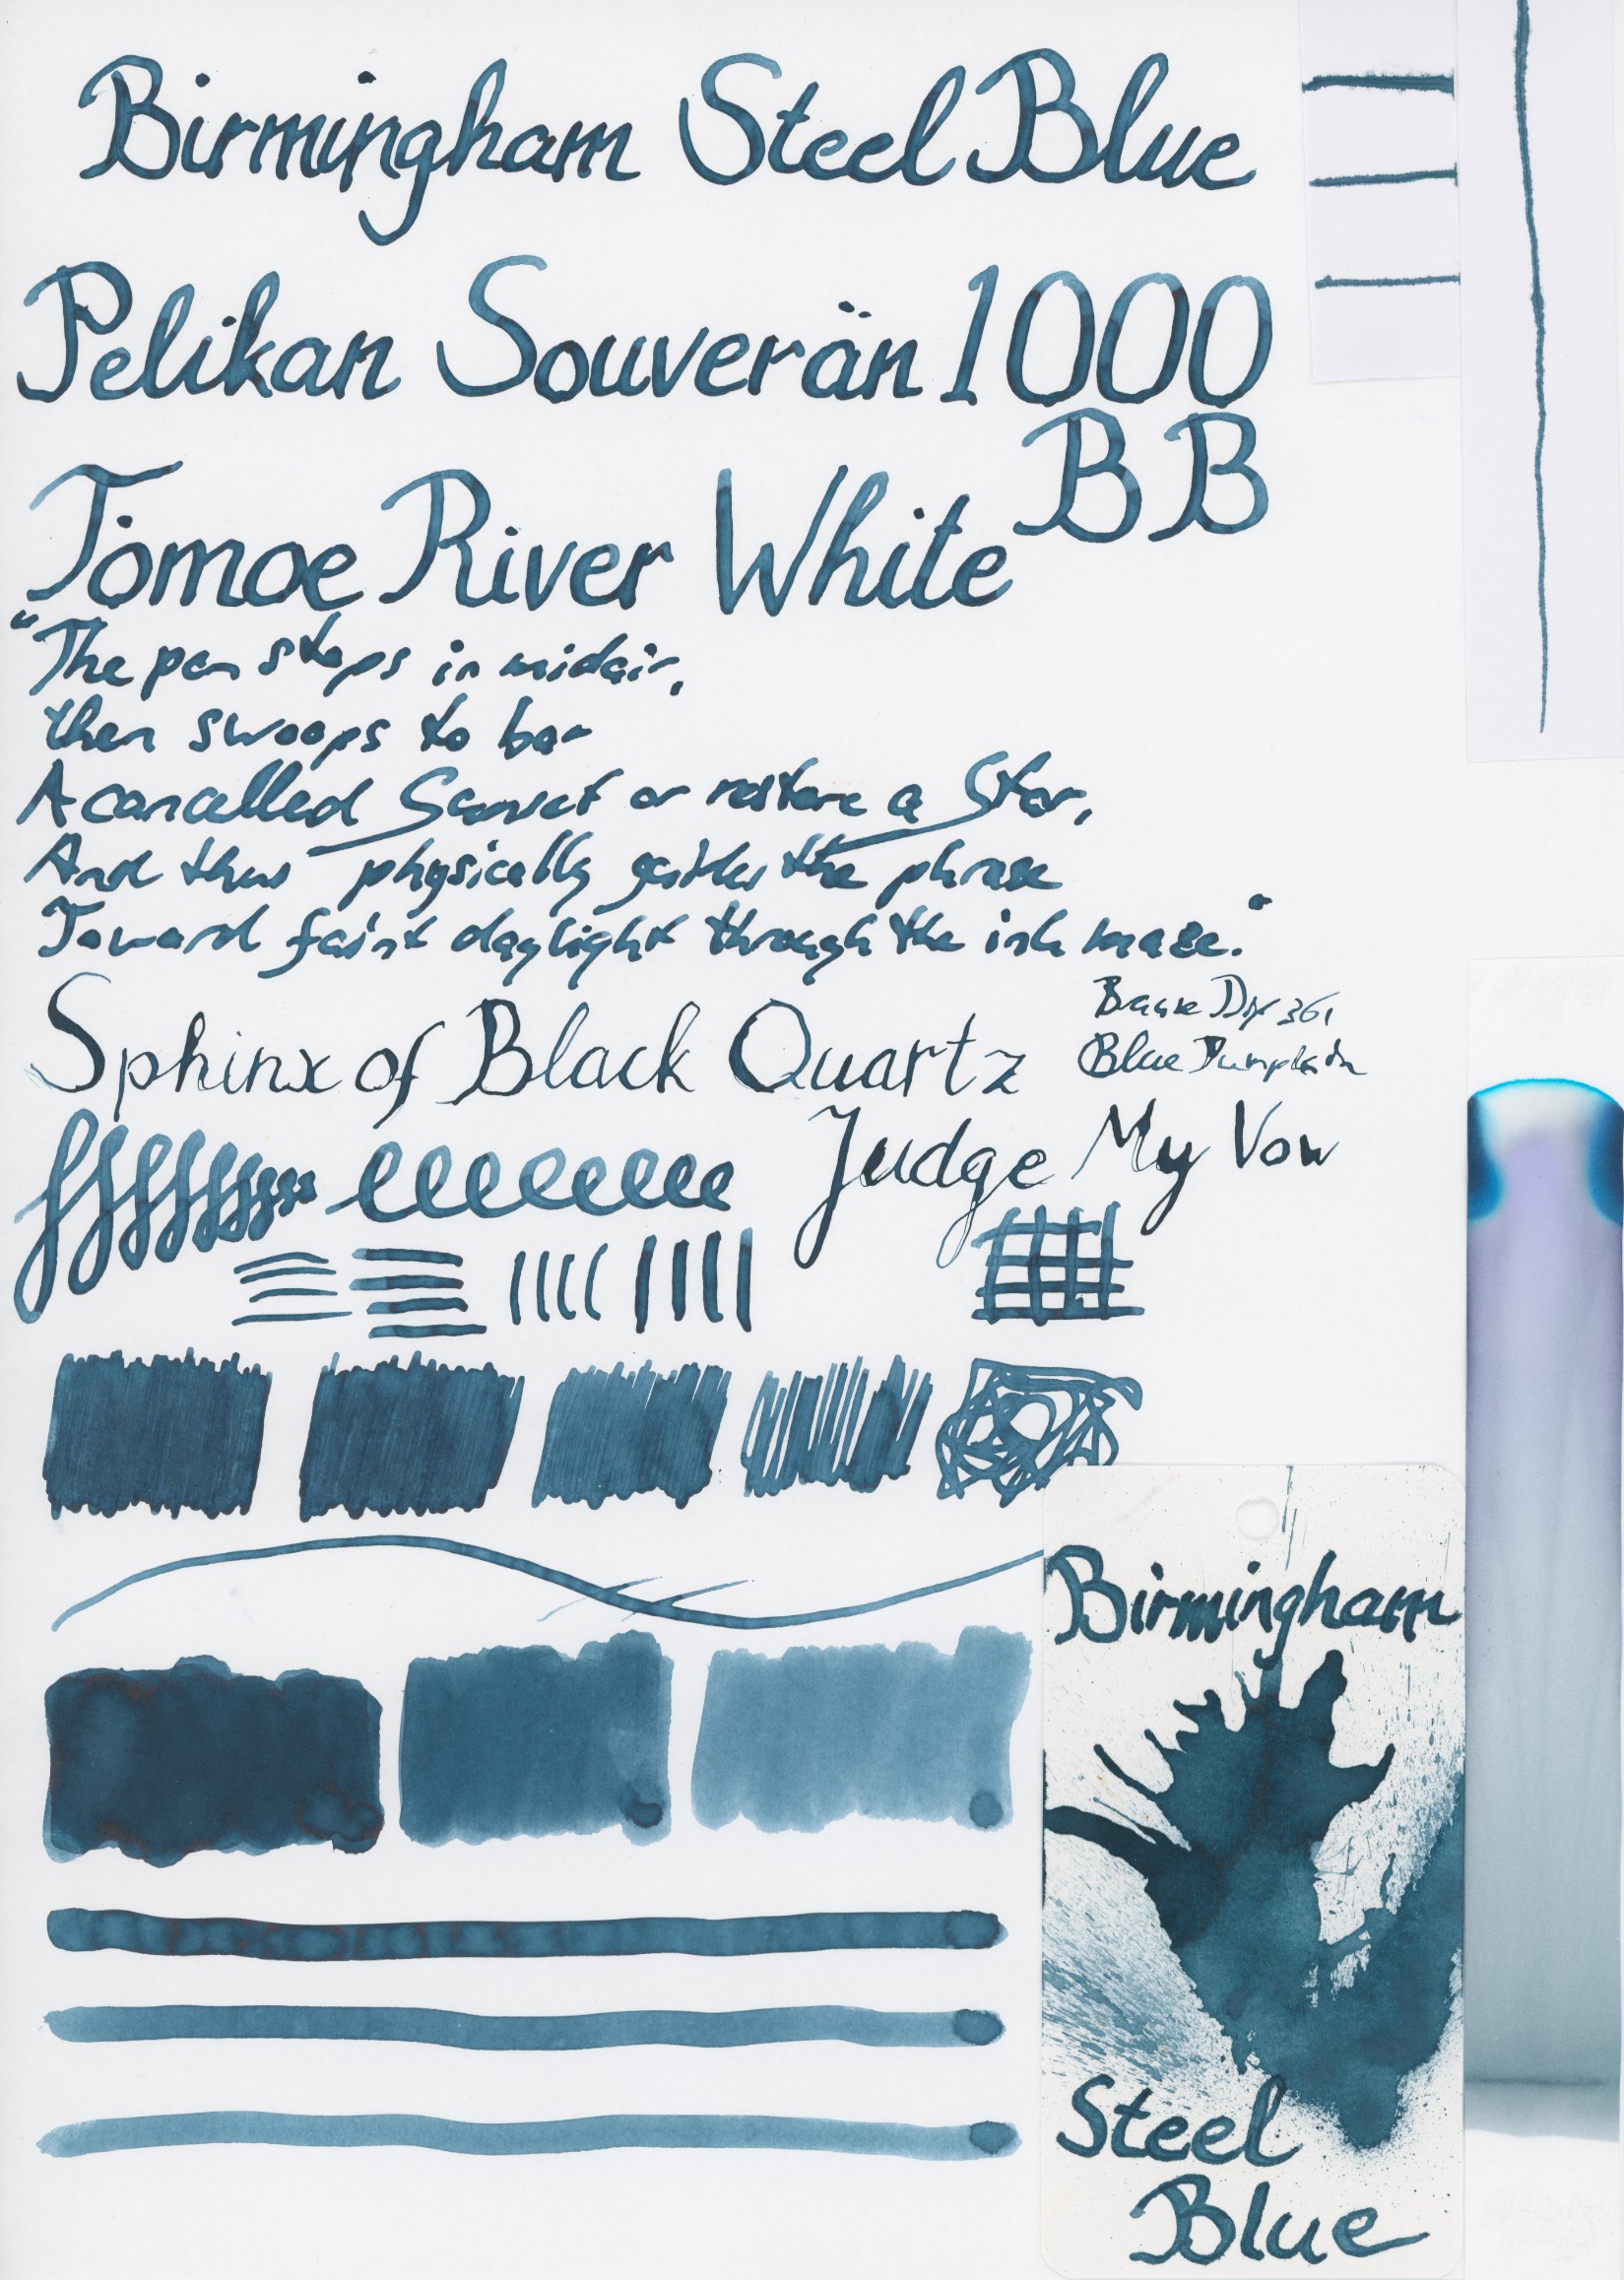 Birmingham Steel Blue
Pelikan Souverän 1000
BB
Tomoe River White
"The pen stops in midair,
then swoops to bar
A cancelled Sunset or restore a Star,
And thus physically guides the phrase
Toward faint daylight through the ink maze."
Sphinx of Black Quartz
Brause Dip 361
Blue Pumpkin
Judge My Vow
Birmingham
Steel
Blue